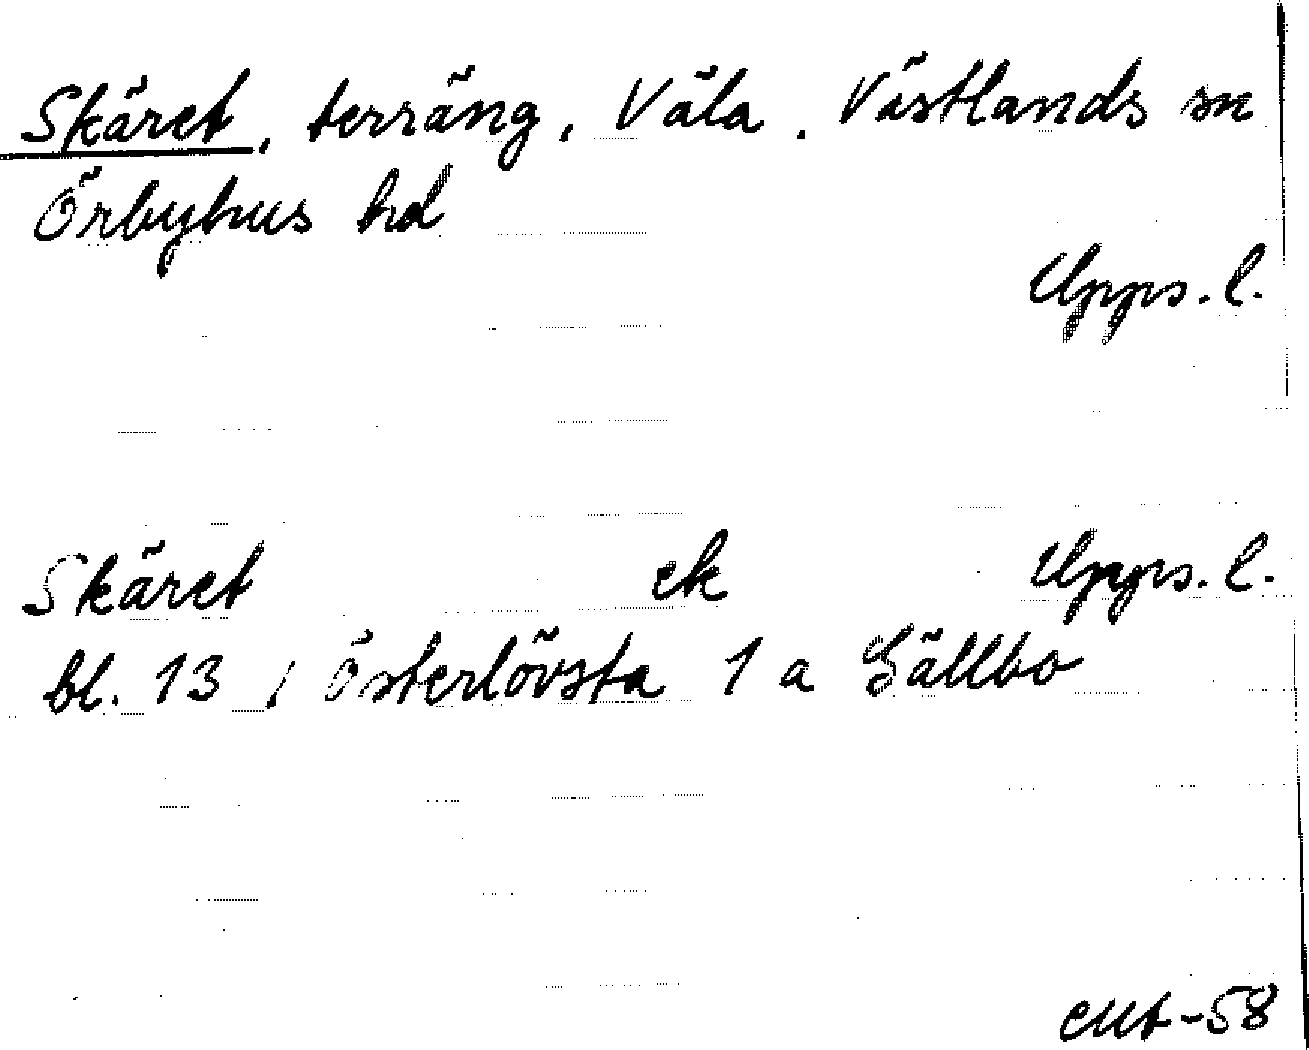 Skäret, terräng, Väla, Västlands sn
Örbyhus hd
Upps. l.
Skäret ek Upps. l.
bl. 13, Österlövsta 1 a Sällbo